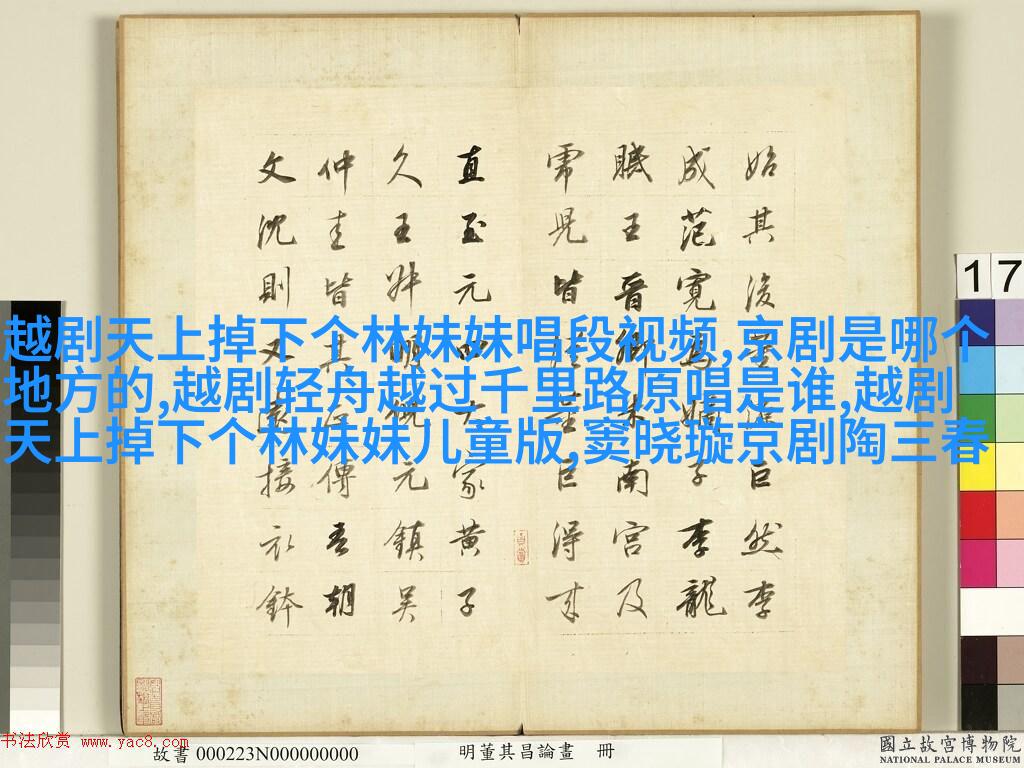 始其後董源巨然李
成范寬為嫡子李龍
眠王晉卿米南宮及
虎兒皆從董巨得來
直至元四大家黃子
久王叔明倪元鎮吳
仲圭皆其正傳吾朝
文沈則又遠接衣鉢
越剧天上掉下个林妹妹唱段视频,京剧是哪个
地方的,越剧轻舟越过千里路原唱是谁,越剧
天上掉下个林妹妹儿童版,窦晓璇京剧陶三春
17
书法欣赏 www.yac8.com
故書 000223N000000000
明董其昌論畫 冊
國立故宮博物院
NATIONAL PALACE MUSEUM